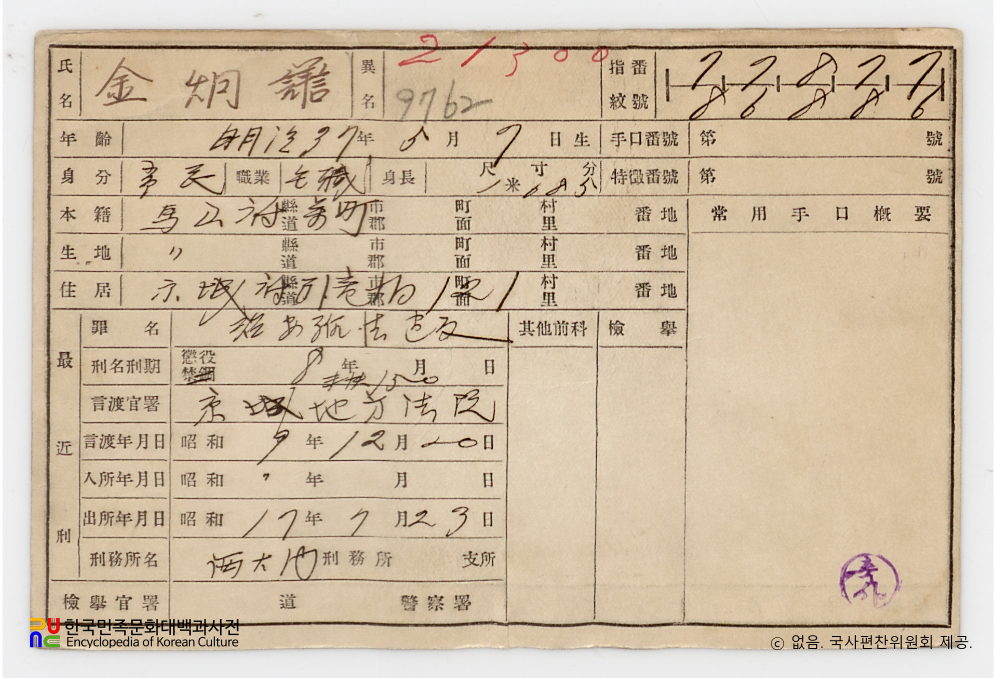 氏名 金炯 異名 21300 9762 指紋番號 7 7 8 7 7 8 6 8 8 6
年齡 明治37年 5月 7日生 手口番號 第 號
身分 常民 職業 無職 身長 尺寸分 1米685 特徵番號 第 號
本籍 馬山府 縣道 町 市郡 町面 村里 番地 常用手口槪要
生地 〃 縣道 市郡 町面 村里 番地
住居 京城府 縣道 市郡 町面 121 村里 番地
最近刑
罪名 治安維持法違反 其他前科 檢擧
刑名刑期 懲役 禁錮 8年 月 日
未決150
言渡官署 京城地方法院
言渡年月日 昭和9年12月20日
入所年月日 昭和 〃 年 月 日
出所年月日 昭和17年7月23日
刑務所名 西大門刑務所 支所
檢擧官署 道 警察署
한국민족문화대백과사전
Encyclopedia of Korean Culture
ⓒ 없음. 국사편찬위원회 제공.